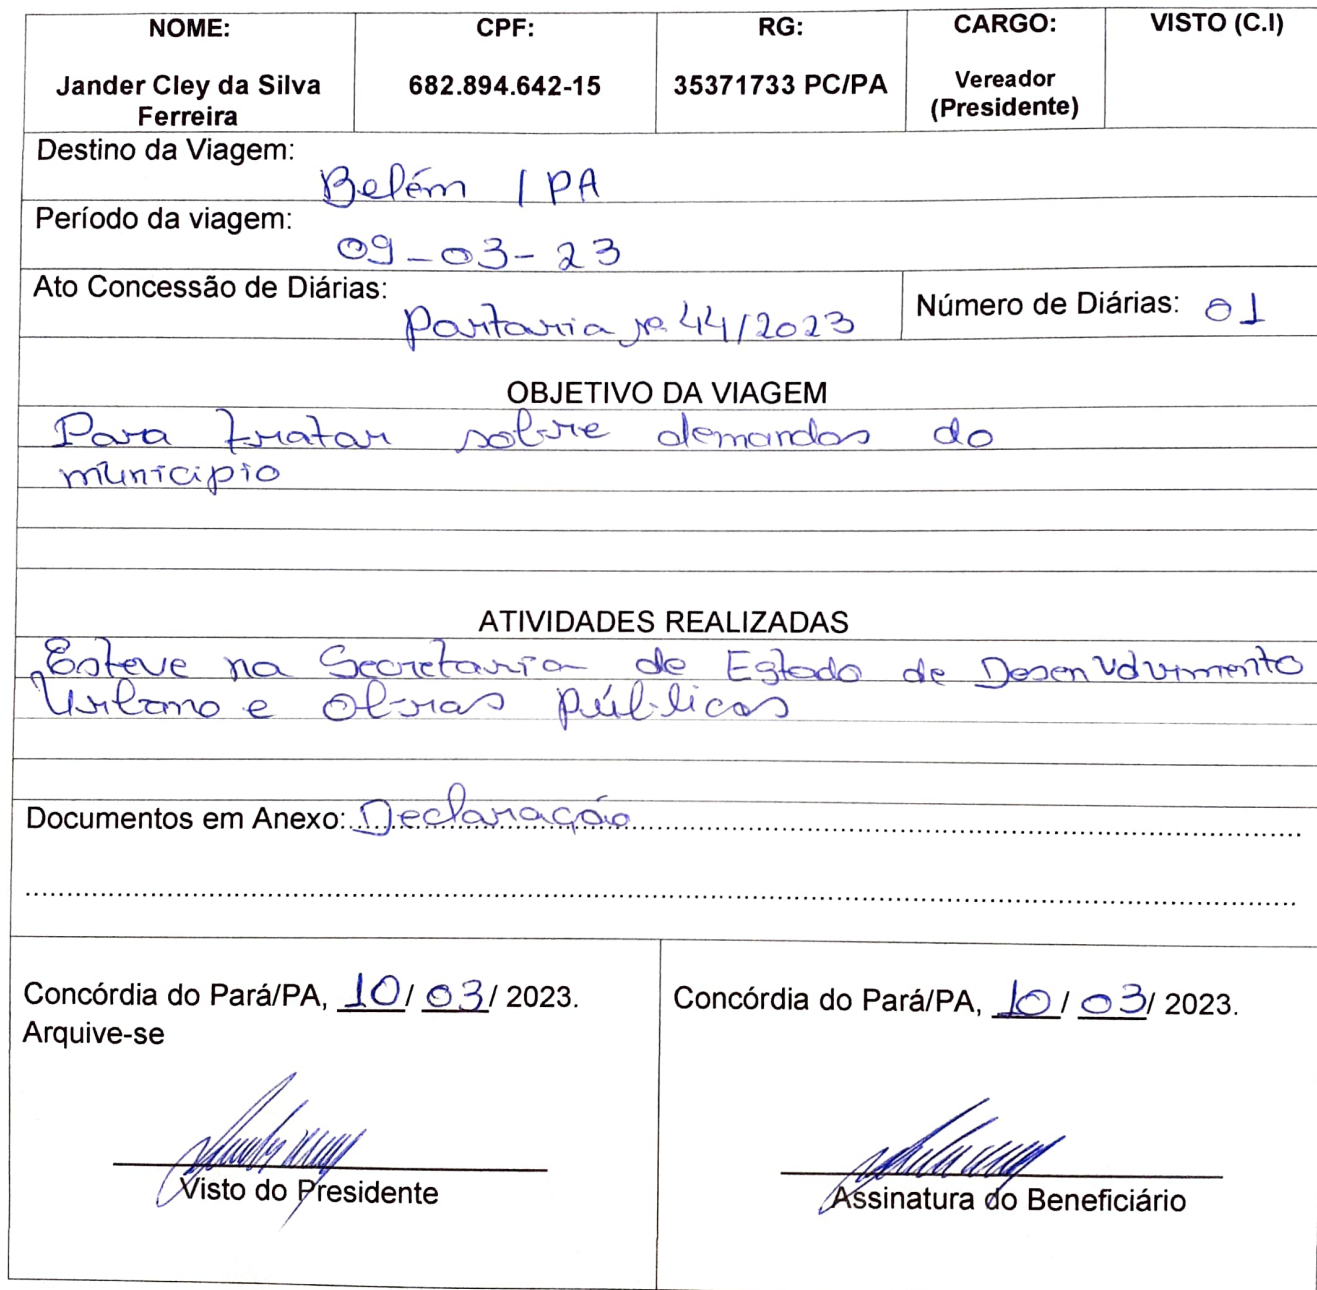 NOME: CPF: RG: CARGO: VISTO (C.I)
Jander Cley da Silva Ferreira 682.894.642-15 35371733 PC/PA Vereador (Presidente)
Destino da Viagem: Belém / PA
Período da viagem: 09-03-23
Ato Concessão de Diárias: Portaria nº 44/2023 Número de Diárias: 01
OBJETIVO DA VIAGEM
Para tratar sobre demandas do
município
ATIVIDADES REALIZADAS
Esteve na Secretaria de Estado de Desenvolvimento
Urbano e Obras Públicas
Documentos em Anexo: Declaração
Concórdia do Pará/PA, 10/ 03/ 2023.
Arquive-se
Visto do Presidente
Concórdia do Pará/PA, 10/ 03/ 2023.
Assinatura do Beneficiário